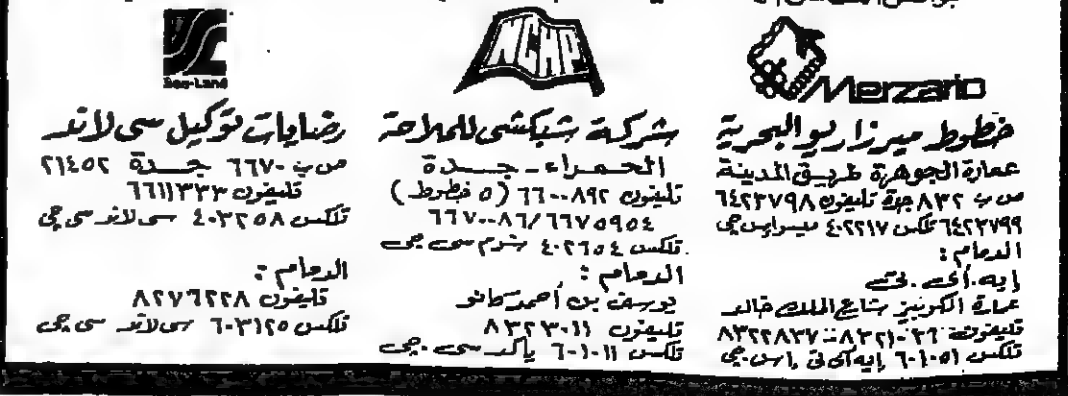 Merzario
خطوط ميرزاريو البحرية
عمارة الجوهرة طريق المدينة
ص ب ٨٣٢ جدة تليفون ٦٤٢٣٧٩٨
٦٤٢٣٧٩٩ تلكس ٤٠٢٢١٧ ميسراس جي
الدمام :
إيه. أي. تي
عمارة الكونيز شارع الملك خالد
تليفون ٨٣٢١٠٣٦ - ٨٣٢٢٨٣٧
تلكس ٦٠١٠٥١ إيه اي تي إس. جي
NCHP
شركة شبكشي للملاحة
الحمراء - جدة
تليفون ٦٦٠٠٨٩٢ (٥ خطوط)
٦٦٧٠٠٨٦/٦٦٧٥٩٥٤
تلكس ٤٠٢٦٥٤ شرم سي جي
الدمام :
يوسف بن أحمد كانو
تليفون ٨٣٢٣٠١١
تلكس ٦٠١٠١١ ياكد سي. جي
Sea-Land
رضايات توكيل سي لاند
ص ب ٦٦٧٠ جدة ٢١٤٥٢
تليفون ٦٦١١٣٣٣
تلكس ٤٠٣٢٥٨ سي لاند سي جي
الدمام :
تليفون ٨٢٧٦٢٢٨
تلكس ٦٠٣١٢٥ سي لاند سي جي